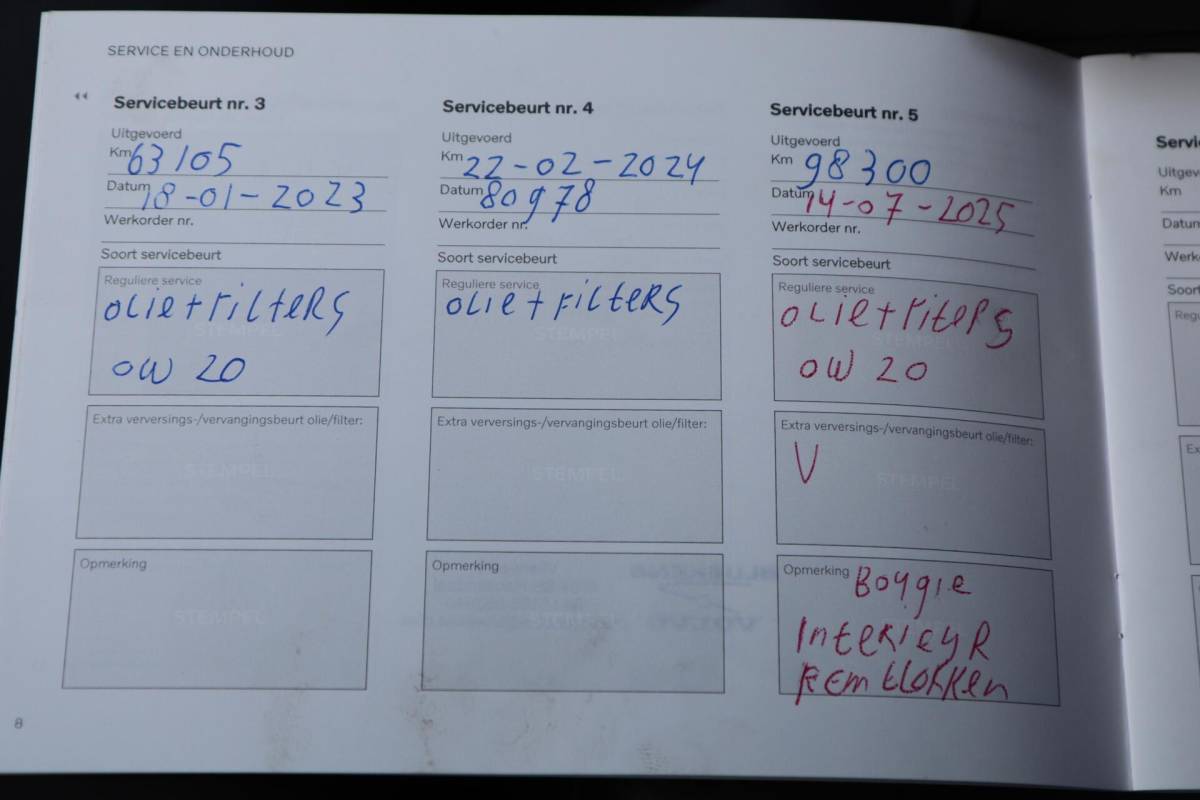 SERVICE EN ONDERHOUD
Servicebeurt nr. 3
Uitgevoerd
Km 63105
Datum 18-01-2023
Werkorder nr.
Soort servicebeurt
Reguliere service
OLie+FilteRS
OW 20
STEMPEL
Extra verversings-/vervangingsbeurt olie/filter:
STEMPEL
Opmerking
STEMPEL
Servicebeurt nr. 4
Uitgevoerd
Km 22-02-2024
Datum 80978
Werkorder nr.
Soort servicebeurt
Reguliere service
OLie+FilteRS
STEMPEL
Extra verversings-/vervangingsbeurt olie/filter:
STEMPEL
Opmerking
STEMPEL
Servicebeurt nr. 5
Uitgevoerd
Km 98300
Datum 14-07-2025
Werkorder nr.
Soort servicebeurt
Reguliere service
OLie+FiteRS
OW 20
STEMPEL
Extra verversings-/vervangingsbeurt olie/filter:
V
STEMPEL
Opmerking Boygie
InteRieyR
RemBlokken
8
Servi
Uitgev
Km
Datum
Werk
Soort
Regu
Ex